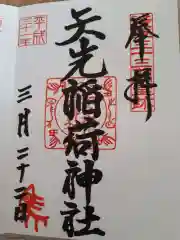 奉拝
矢先稲荷神社
平成
三十年
三月二十二日